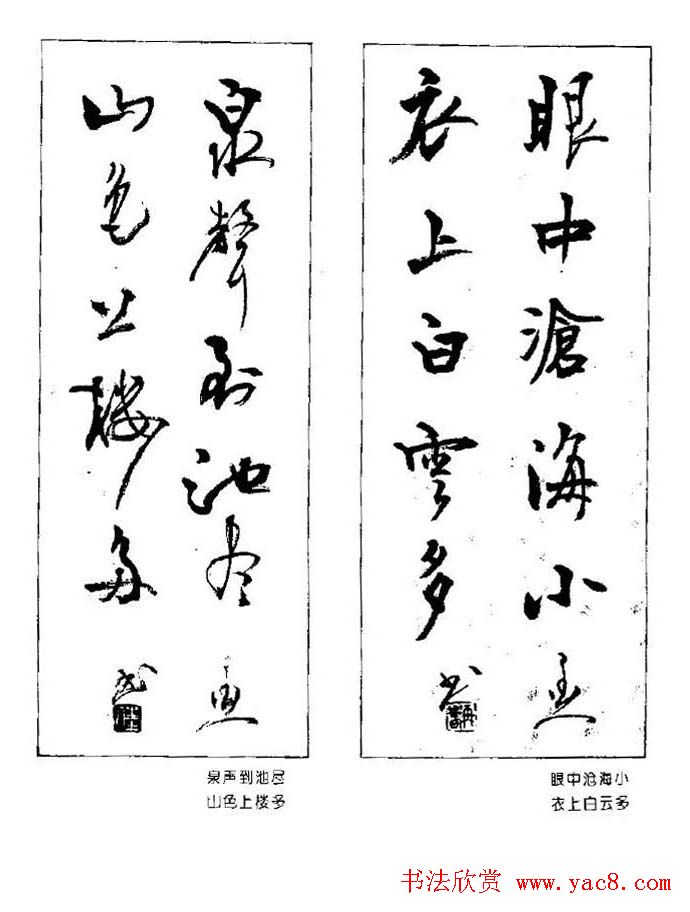 眼中滄海小
衣上白雲多
書
泉聲到池尽
山色上樓多
書
眼中沧海小
衣上白云多
泉声到池尽
山色上楼多
书法欣赏 www.yac8.com